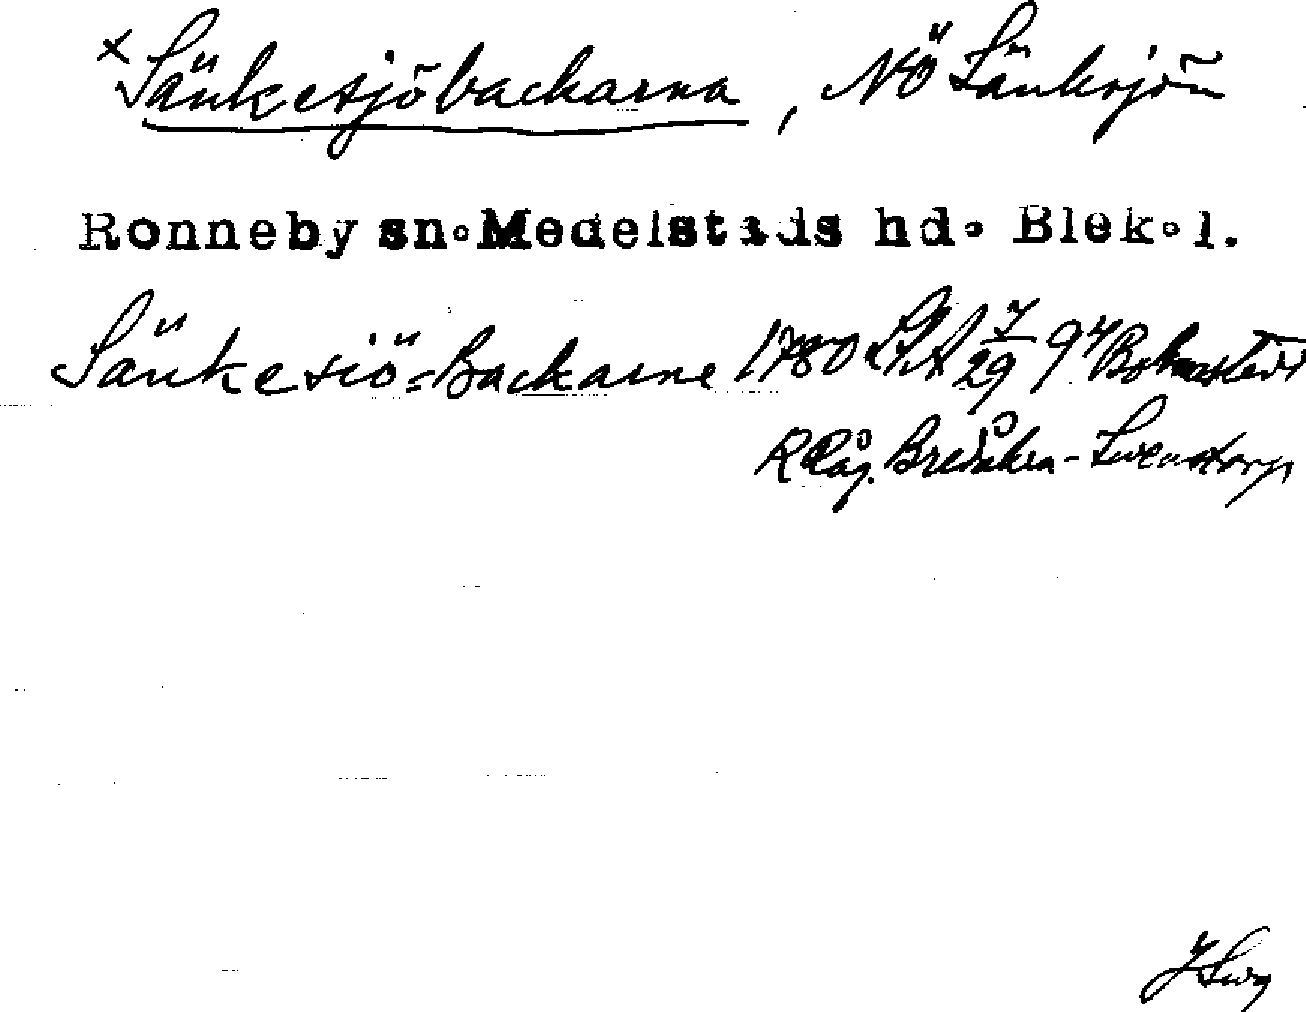 x Sänkesjöbackarna, NÖ Sänksjön
Ronneby sn. Medelstads hd. Blek. l.
Sänkesiö=Backarne 1780 LStA 7/29 94 Bokmästar
R Råg. Bredåkra-Svenstorp
J Swg